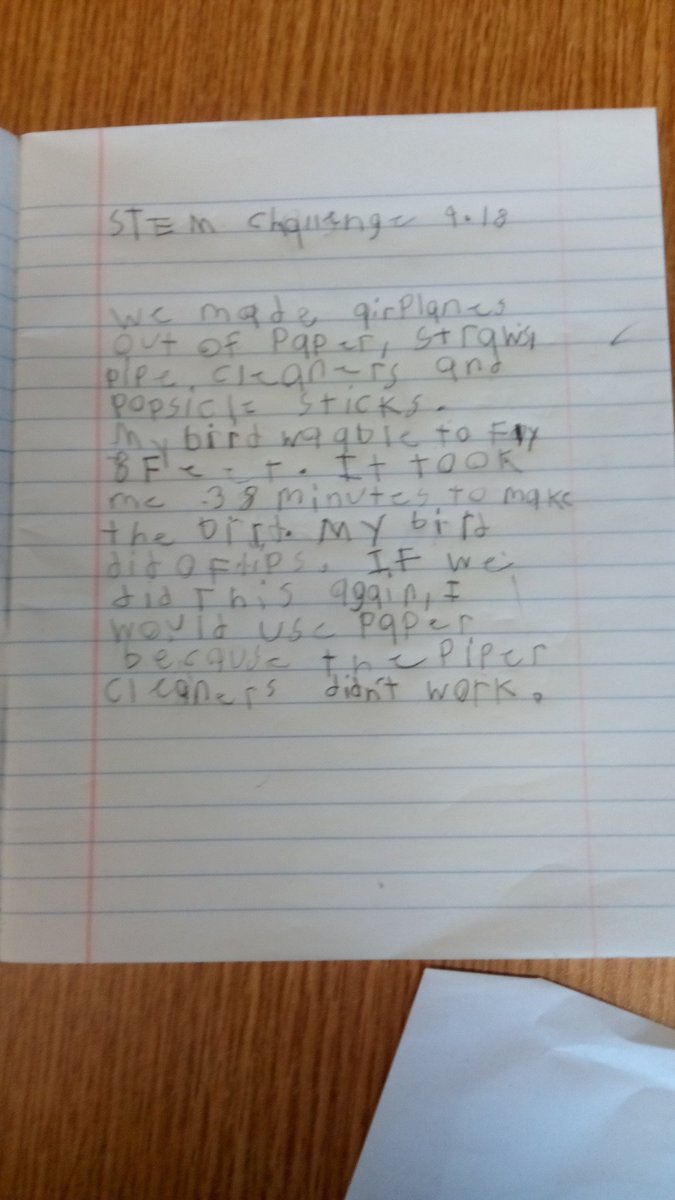 STEM Challenge 9.18
We made airplanes
out of Paper, straws,
pipe cleaners and
popsicle sticks.
My bird wa able to Fly
8 Feet. It took
me 38 minutes to make
the bird. My bird
did flips. IF we
did This again, I
would use Paper
because the Piper
cleaners didn't work.